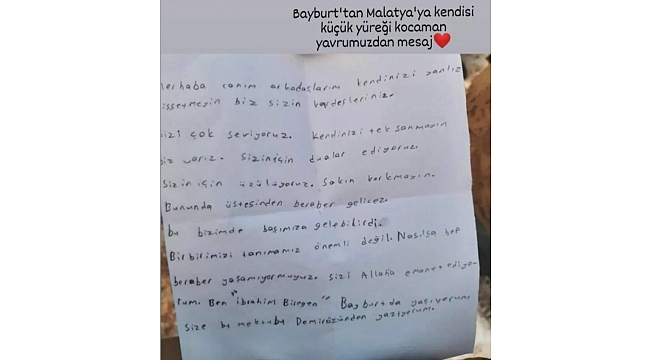 Bayburt'tan Malatya'ya kendisi
küçük yüreği kocaman
yavrumuzdan mesaj❤️
erhaba canım arkadaşlarım kendinizi yanlız
issetmeyin biz sizin kardeşleriniz.
izi çok seviyoruz. Kendinizi tek sanmayın
iz varız. Siziniçin dualar ediyoruz.
Sizin için üzülüyoruz. Sakın korkmayın.
Bununda üstesinden beraber gelicez.
bu bizimde başımıza gelebilirdi.
Birbirimizi tanımamız önemli değil. Nasılsa hep
beraber yaşamıyormuyuz. Sizi Allaha emanet ediyo-
rum. Ben "İbrahim Biregen" Bayburtda yaşıyorum
size bu mektubu Demirözünden yazıyorum.